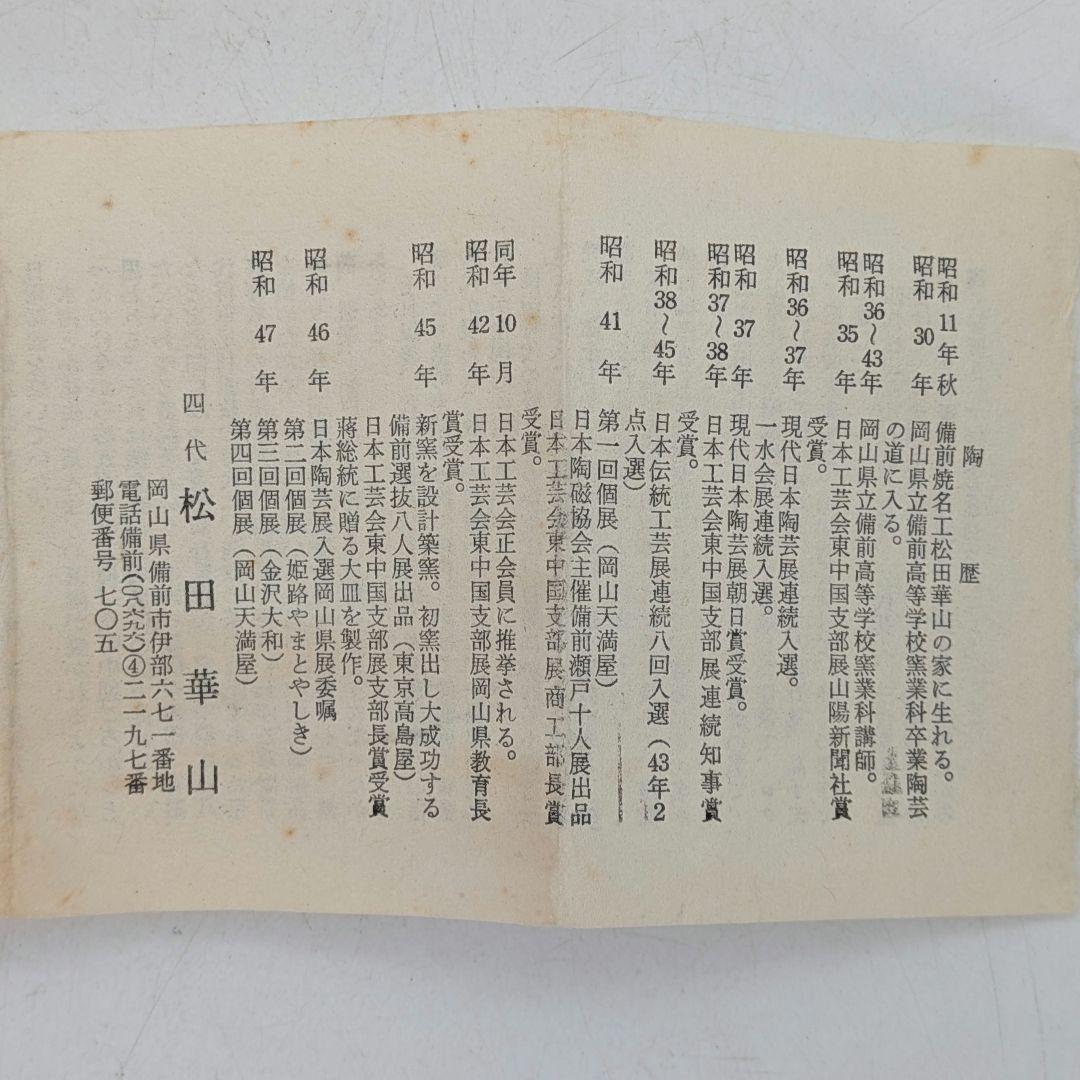 陶歴
昭和11年秋 備前焼名工松田華山の家に生れる。
昭和30年 岡山県立備前高等学校窯業科卒業陶芸
の道に入る。
昭和36〜43年 岡山県立備前高等学校窯業科講師。
昭和35年 日本工芸会東中国支部展山陽新聞社賞
受賞。
昭和36〜37年 現代日本陶芸展連続入選。
一水会展連続入選。
昭和37年 現代日本陶芸展朝日賞受賞。
昭和37〜38年 日本工芸会東中国支部展連続知事賞
受賞。
昭和38〜45年 日本伝統工芸展連続八回入選(43年2
点入選)
昭和41年 第一回個展(岡山天満屋)
日本陶磁協会主催備前瀬戸十人展出品
日本工芸会東中国支部展商工部長賞
受賞。
同年10月 日本工芸会正会員に推挙される。
昭和42年 日本工芸会東中国支部展岡山県教育長
賞受賞。
昭和45年 新窯を設計築窯。初窯出し大成功する
備前選抜八人展出品(東京高島屋)
日本工芸会東中国支部展支部長賞受賞
蔣総統に贈る大皿を製作。
昭和46年 日本陶芸展入選岡山県展委嘱
第二回個展(姫路やまとやしき)
昭和47年 第三回個展(金沢大和)
第四回個展(岡山天満屋)
四代 松田華山
岡山県備前市伊部六七一番地
電話備前(〇八六九六)④二一九七番
郵便番号 七〇五